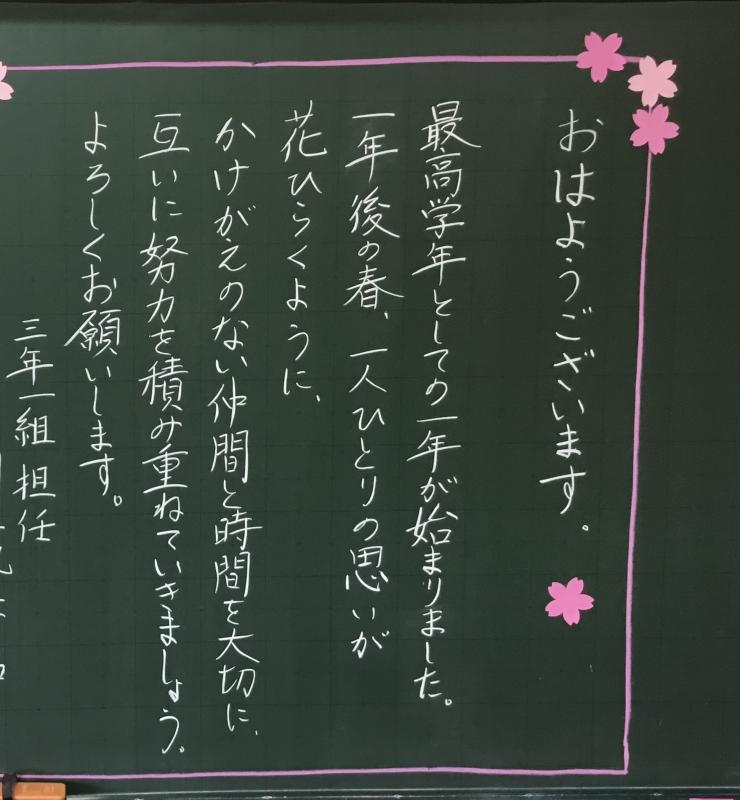 おはようございます。
最高学年としての一年が始まりました。
一年後の春、一人ひとりの思いが
花ひらくように、
かけがえのない仲間と時間を大切に、
互いに努力を積み重ねていきましょう。
よろしくお願いします。
三年一組 担任